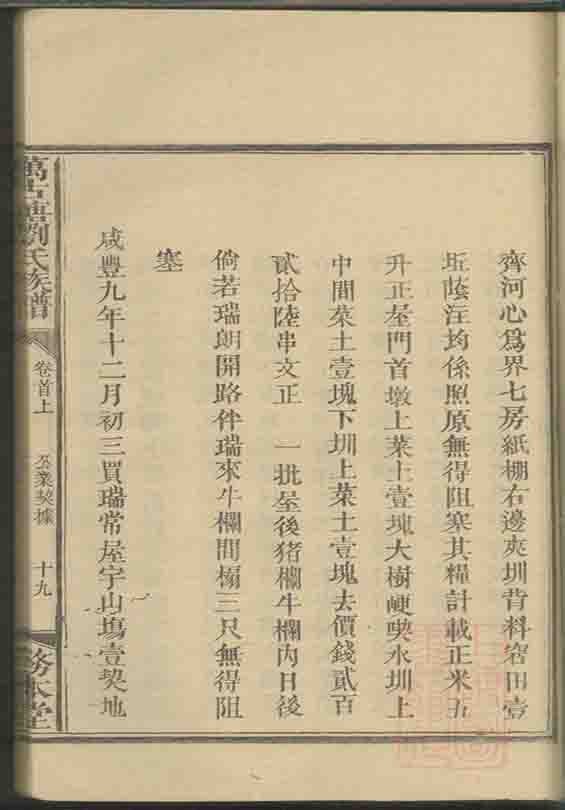 齊河心爲界七房紙棚右邊夾圳背料窖田壹
坵蔭注均係照原無得阻塞其糧計載正米五
升正屋門首墩上菜土壹塊大樹𡎚喫水圳上
中間菜土壹塊下圳上菜土壹塊去價錢貳百
貳拾陸串文正 一批屋後猪欄牛欄內日後
倘若瑞朗開路伴瑞來牛欄間榻三尺無得阻
塞
咸豐九年十二月初三買瑞常屋宇山塲壹契地
劉氏族譜
卷首上
公業契據
十九
務本堂